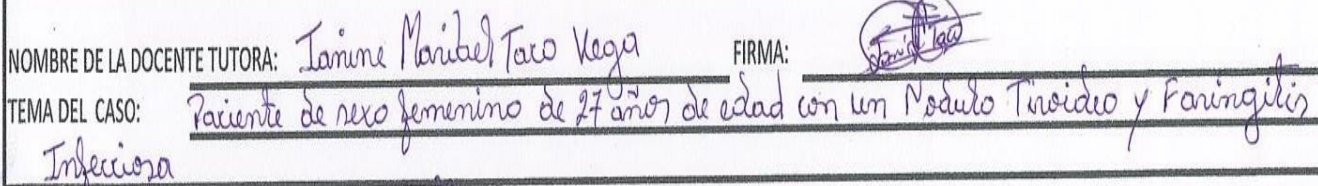 NOMBRE DE LA DOCENTE TUTORA: Janine Maribel Taco Vega FIRMA:
TEMA DEL CASO: Paciente de sexo femenino de 27 años de edad con un Nodulo Tiroideo y Faringitis
Infecciosa